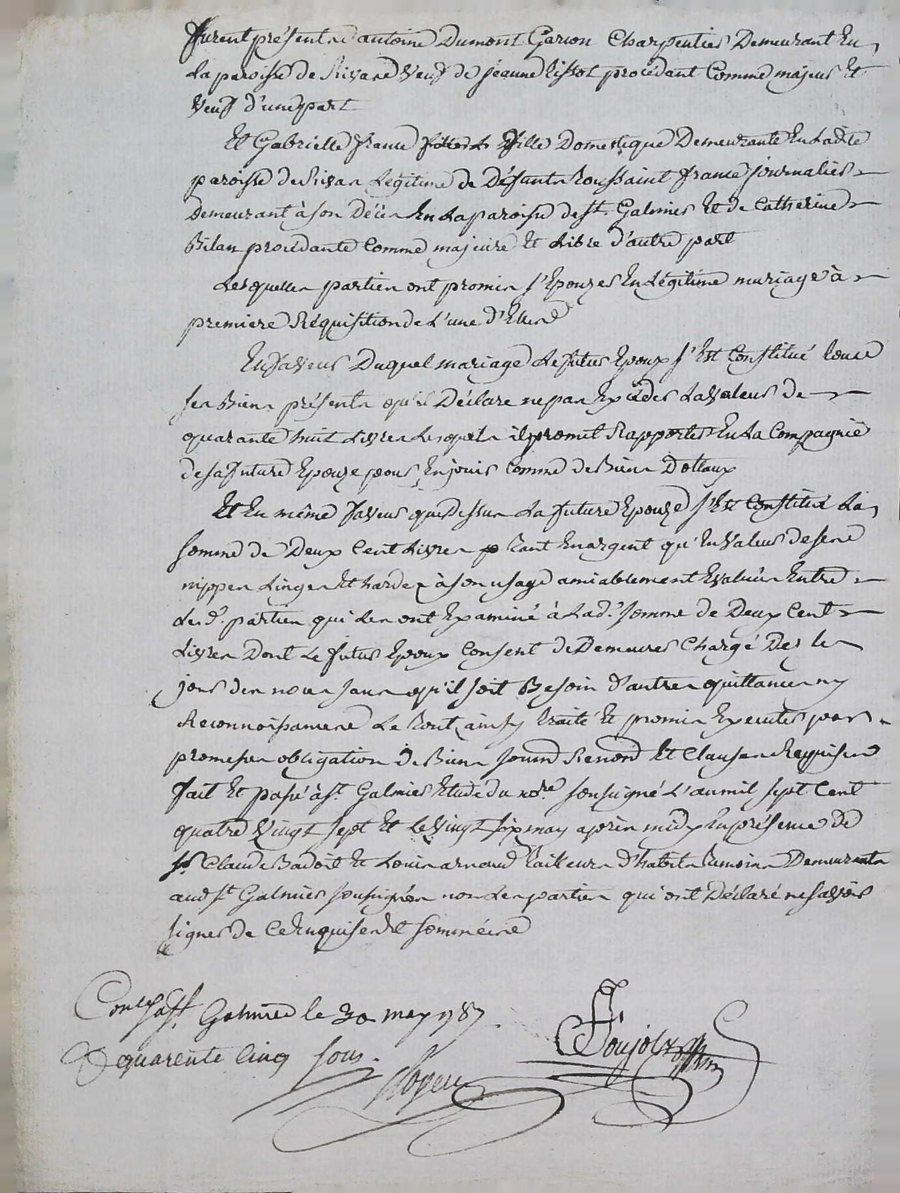 furent présents antoine Dumont Garçon Charpentier Demeurant En
La paroisse de Rivas Veuf de jeanne procédant Comme majeur Et
Veuf d'une part
Et Gabrielle france fille Domestique Demeurante En Ladite
paroisse de Rivas Légitime de Défunts toussaint france journalier
Demeurant à son Décès En La paroisse de St. Galmier Et de Catherine
Bilan procédante Comme majeure Et Libre d'autre part
Lesquelles parties ont promis s'Epouser En Légitime mariage à
premiere Réquisition de L'une d'Elles
En faveur Duquel mariage Le futur Epoux s'Est Constitué tous
ses Biens présents qu'il Déclare ne pas Excéder La valeur de
quarante huit Livres Lesquels il promet Rapporter En La Compagnie
de sa future Epouze pour En jouir Comme de Biens Dotaux
Et En même faveur que dessus La future Epouze s'Est Constitué La
somme de Deux Cent Livres tant En argent qu'En valeur de ses
nippes Linges Et hardes à son usage amiablement Evalués Entre
Les d. parties qui Les ont Examiné à Lad. somme de Deux Cent
Livres Dont Le futur Epoux Consent de Demeurer Chargé Dès le
jour des noces sans qu'il soit Besoin d'autres quittances ny
Reconnoissances Le tout ainsy traité Et promis Executer par
promesses obligation de Biens Et Clauses Requises
fait Et passé à St. Galmier Etude du nore. soussigné L'an mil sept Cent
quatre Vingt sept Et Le Vingt six may après midy En présence de
sr. Claude Badoit Et Louis arnaud tailleur d'habits temoins Demeurants
aud. St. Galmier soussignés non Les parties qui ont Déclaré ne savoir
signer de Ce Enquises Et
Con. à St. Galmier le 30 may 1787
R quarente Cinq sous.